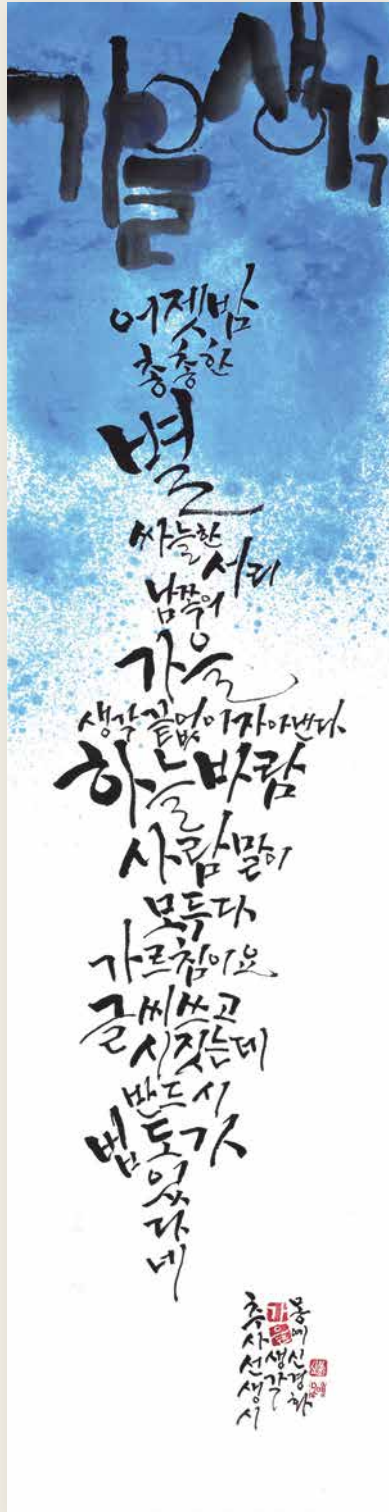 가을생각
어젯밤
총총한
별
싸늘한
서리
남쪽의
가을
생각 끝없이 자아낸다
하늘 바람
사람 말이
모두다
가르침이요
글씨 쓰고
시 짓는데
반드시
법도 갖
었다네
추사선생시
가을생각
몽예신경화